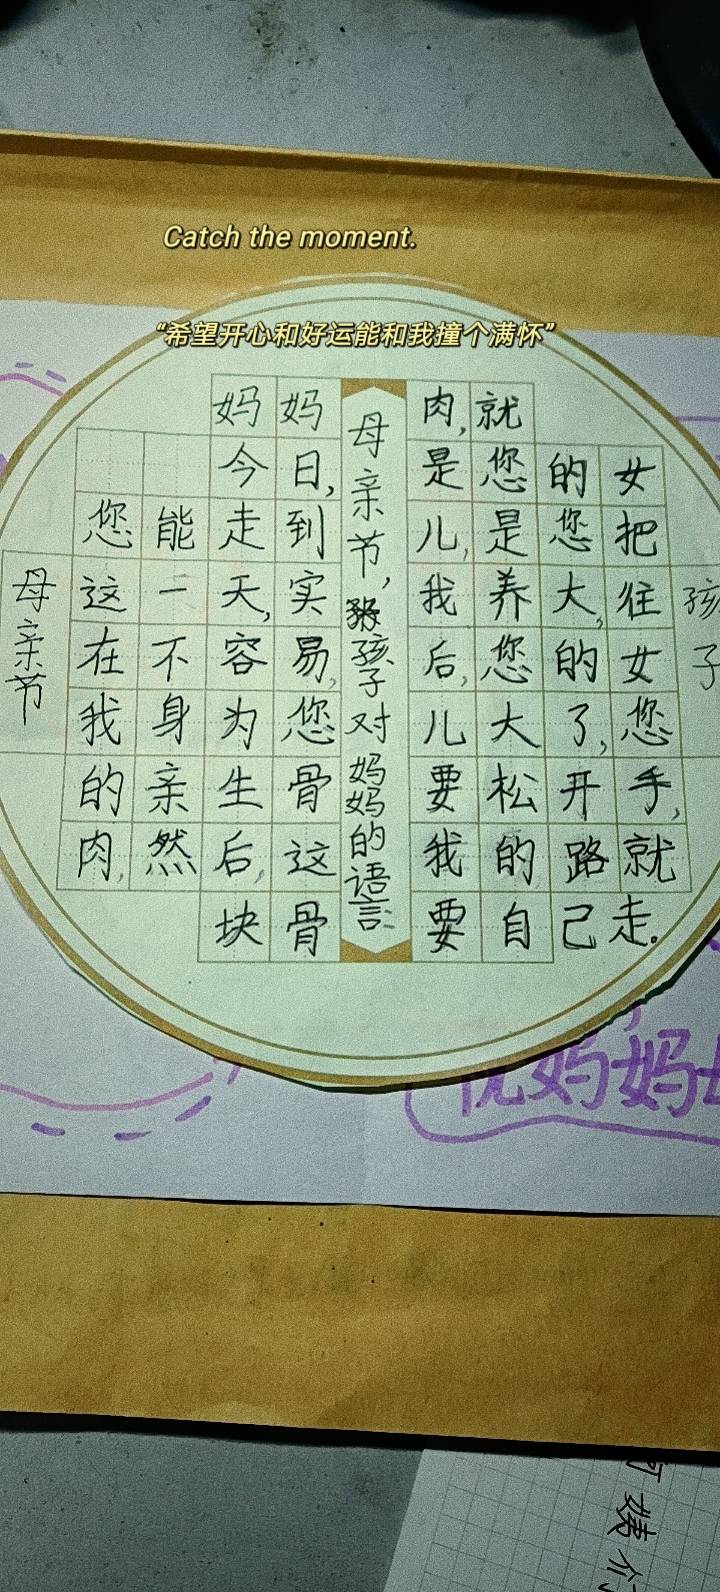 Catch the moment.
“希望开心和好运能和我撞个满怀”
母亲节
妈妈
今日,
您能走到
这一天,实
在不容易,
我身为您
的亲生骨
肉,然后,这
块骨
母亲节,孩子对妈妈的语言
肉,就
是您的女
儿,是您把
我养大,往
后,您的女
儿大了,您
要松开手,
我的路就
要自己走。
孩子
妈妈
姨们